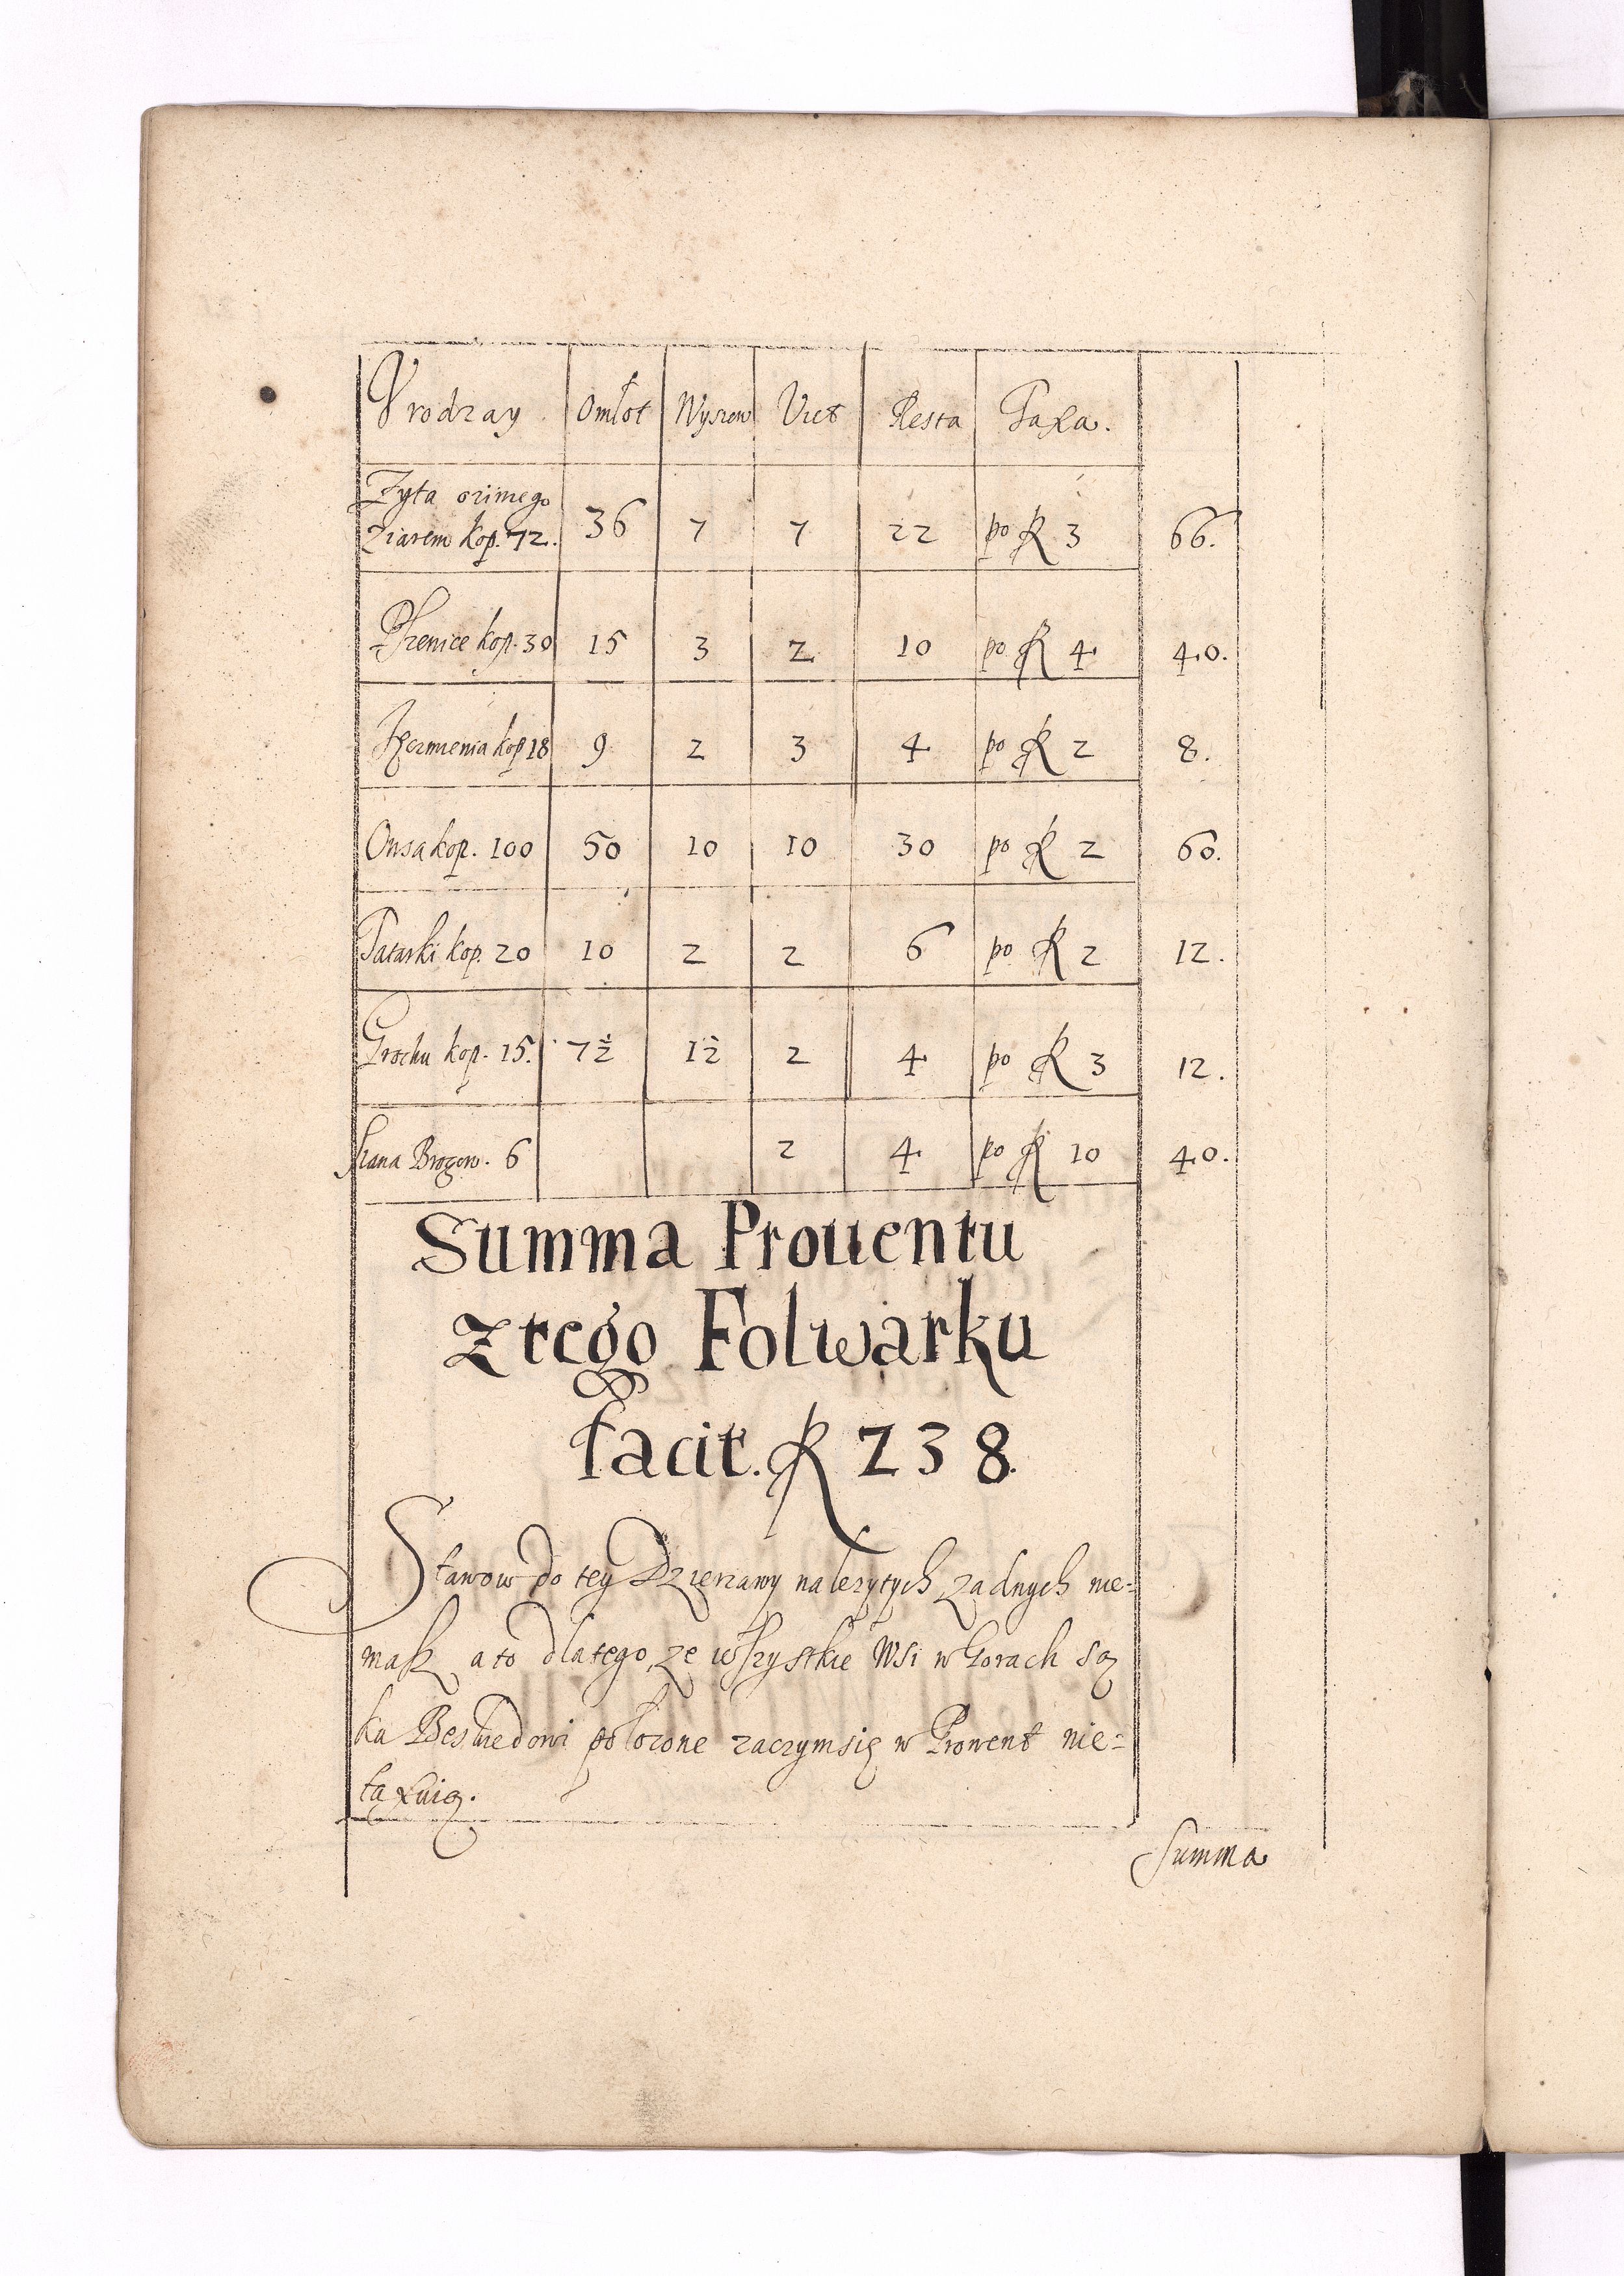 Vrodzay Omłot Wysiew Vict Resta Taxa.
Zyta ozimego
Ziarem kop. 72. 36 7 7 22 po R 3 66.
Pszenice kop. 30 15 3 2 10 po R 4 40.
Jęczmienia kop 18 9 2 3 4 po R 2 8.
Owsa kop. 100 50 10 10 30 po R 2 60.
Tatarki kop. 20 10 2 2 6 po R 2 12.
Grochu kop. 15. 7½ 1½ 2 4 po R 3 12.
Siana Brogow. 6 2 4 po R 10 40.
Summa Prouentu
z tego Folwarku
facit. R 238.
Stawow do tey Dzierzawy nalezytych zadnych nie=
masz a to dlatego, ze wszystkie Wsi w Gorach są
ku Beskiedowi połozone zaczym się w Prowent nie=
taxuią.
Summa